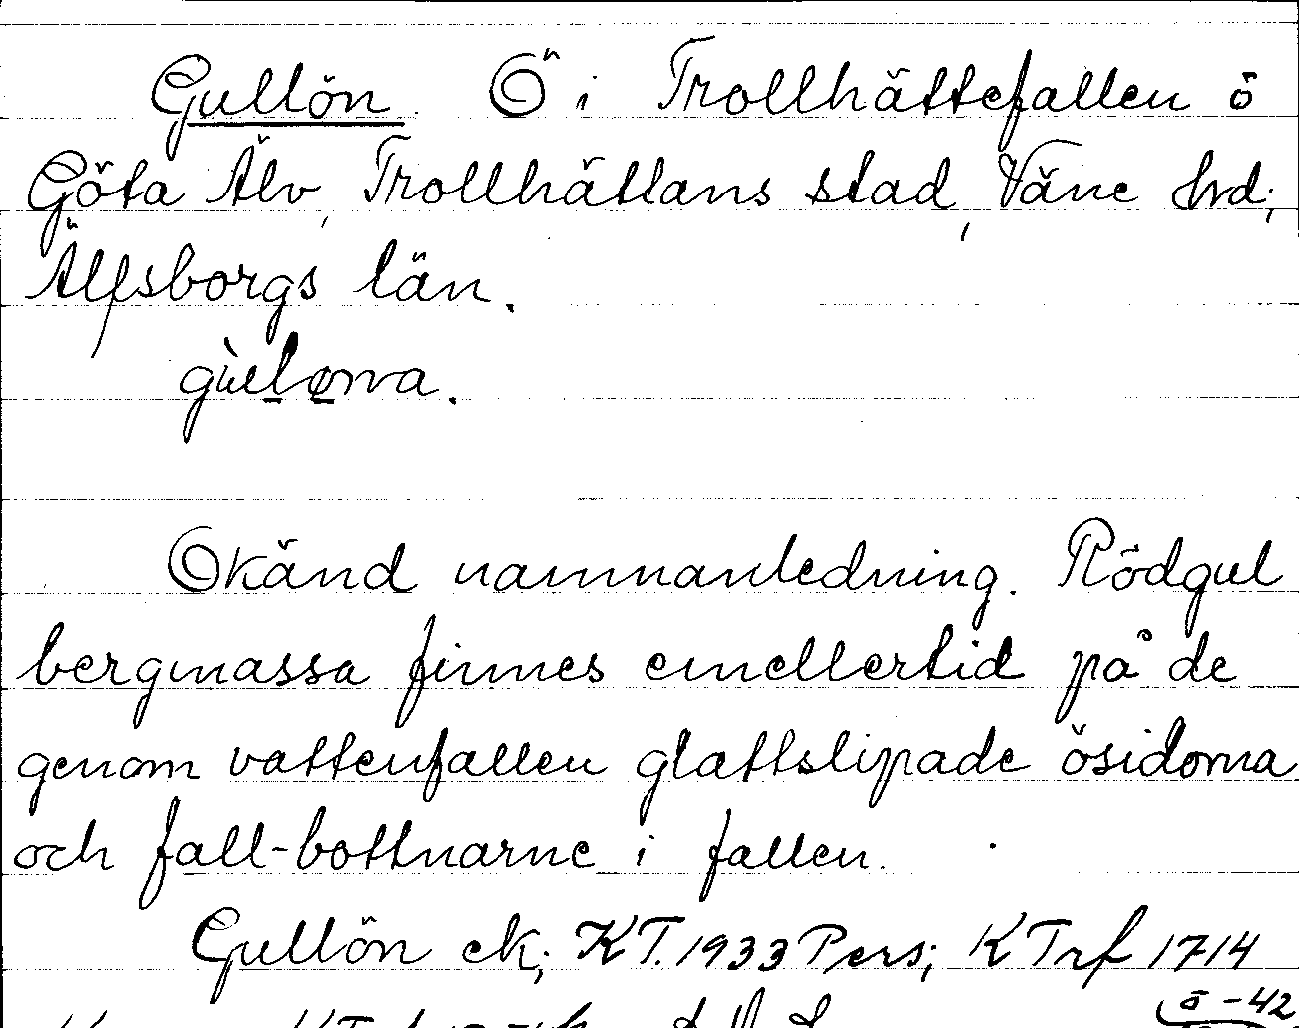 Gullön. Ö i Trollhättefallen ö
Göta Älv, Trollhättans stad, Väne hrd;
Älfsborgs län.
gu̇løna.
Okänd namnanledning. Rödgul
bergmassa finnes emellertid på de
genom vattenfallen glattslipade ösidorna
och fall-bottnarne i fallen.
Gullön ek; KT. 1933 Pers; KTrf 1714
ö-42